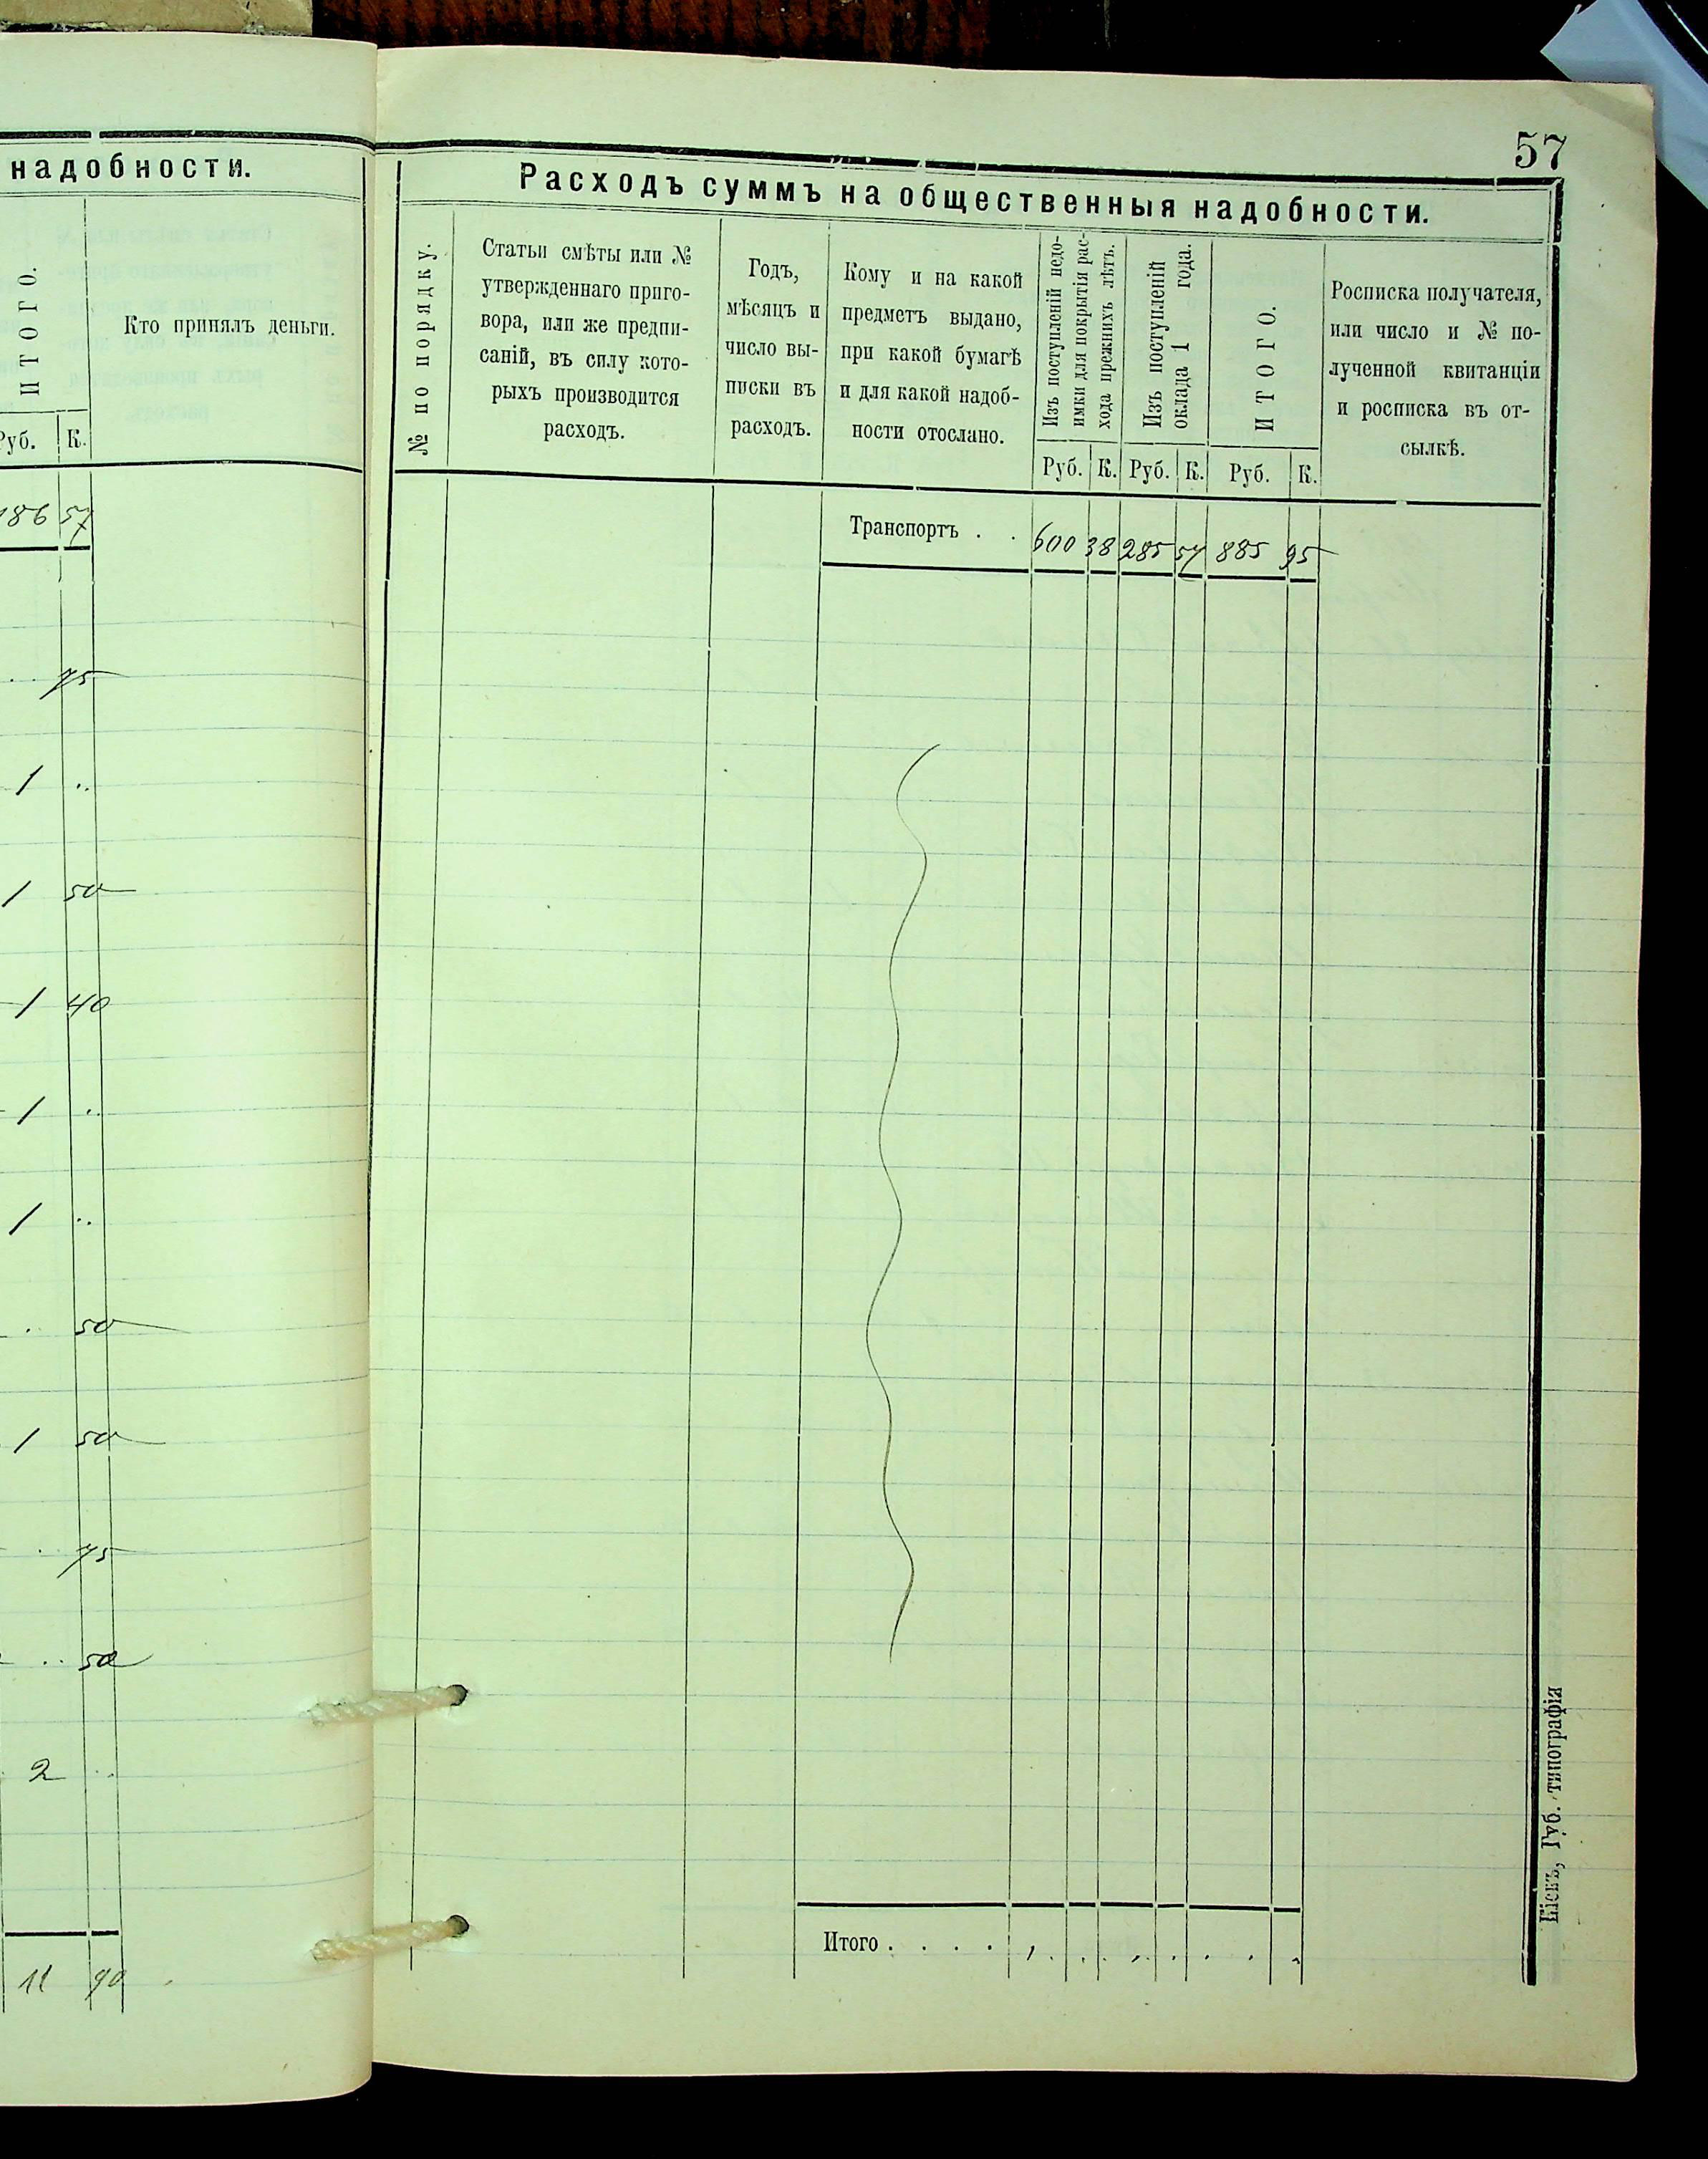 надобности.
ИТОГО.
Кто принялъ деньги.
Руб. К.
186 57
75
1 ..
1 50
1 40
1 ..
1 ..
50
1 50
75
50
2 ..
11 90
57
Расходъ суммъ на общественныя надобности.
№ по порядку.
Статьи смѣты или №
утвержденнаго приго-
вора, или же предпи-
саній, въ силу кото-
рыхъ производится
расходъ.
Годъ,
мѣсяцъ и
число вы-
писки въ
расходъ.
Кому и на какой
предметъ выдано,
при какой бумагѣ
и для какой надоб-
ности отослано.
Изъ поступленій недо-
имки для покрытія рас-
хода прежнихъ лѣтъ.
Изъ поступленій
оклада 1 года.
ИТОГО.
Росписка получателя,
или число и № по-
лученной квитанціи
и росписка въ от-
сылкѣ.
Руб. К. Руб. К. Руб. К.
Транспортъ . . 600 38 285 57 885 95
Итого . . . .
Губ. типографія